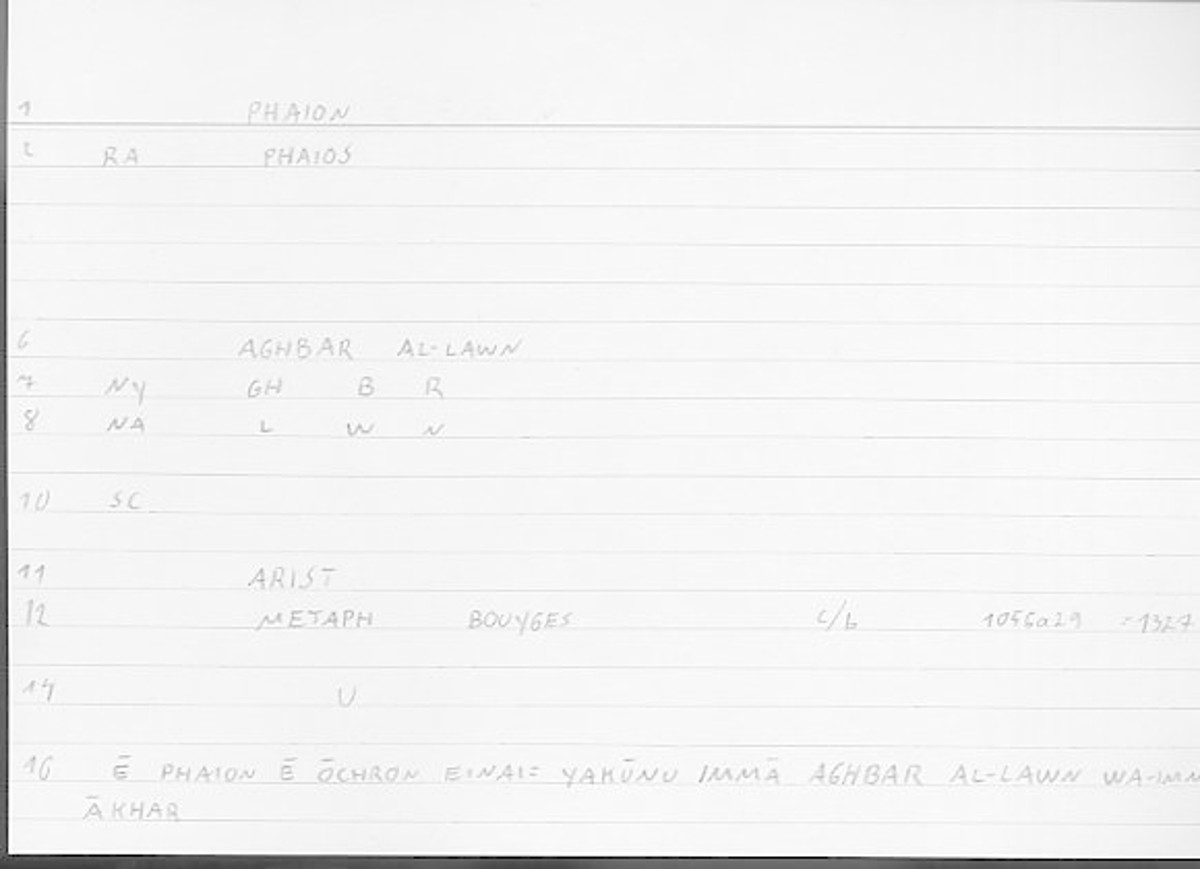 1 PHAION
2 RA PHAIOS
6 AGHBAR AL-LAWN
7 NY GH B R
8 NA L W N
10 SC
11 ARIST
12 METAPH BOUYGES c/b 1056a29 =1327
14 U
16 Ē PHAION Ē ŌCHRON EINAI= YAKŪNU IMMĀ AGHBAR AL-LAWN WA-IMM
ĀKHAR